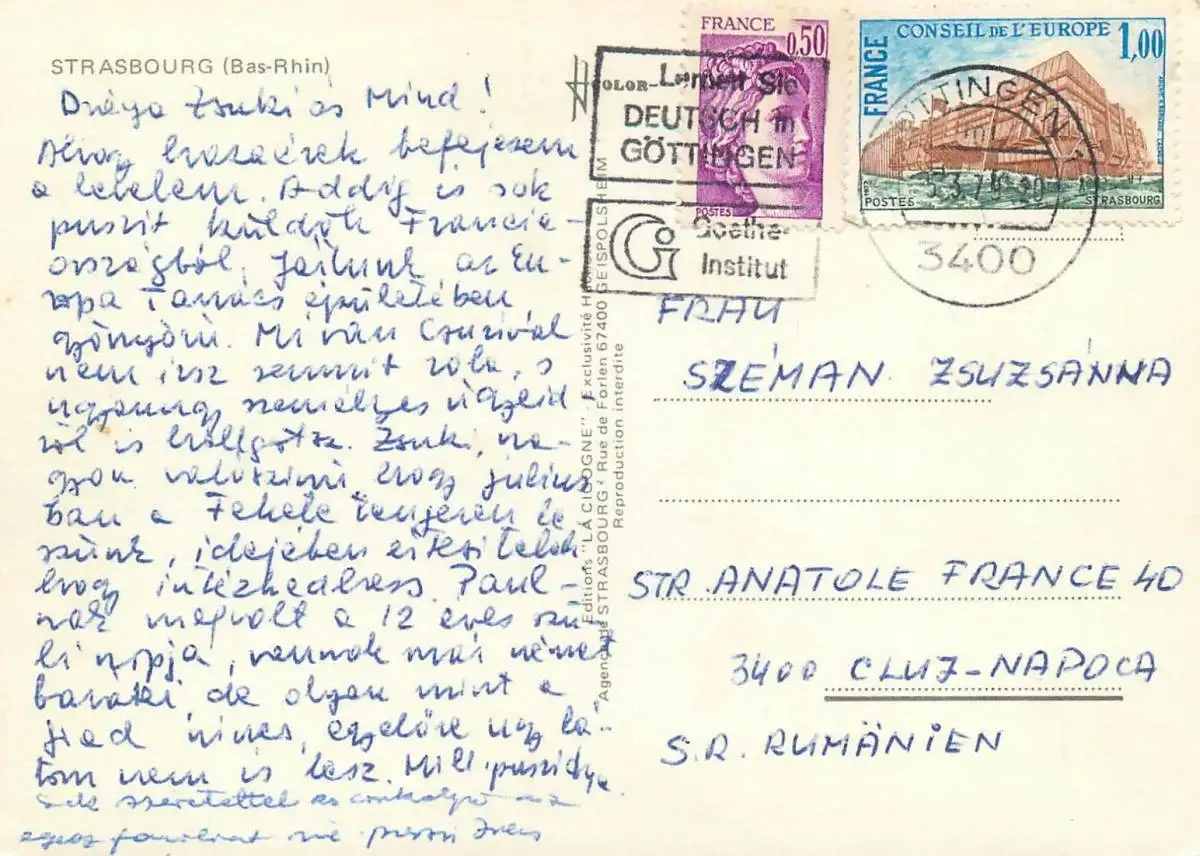 STRASBOURG (Bas-Rhin)
Drága Zsuki és Mind!
Ahogy hazaérek befejezem
a levelem. Addig is sok
puszit küldök Francia-
országból, jártunk az Eu-
ropa Tanács épületében
gyönyörü. Mi van Csurival
nem irsz semmit róla, s
ugyanugy személyes ügyeid
ről is hallgatsz. Zsuki, na-
gyon valószinü hogy julius
ban a Fekete tengeren le
szünk, idejében értesitelek
hogy intézkedhess. Paul-
nak megvolt a 12 éves szü-
li napja, vannak már német
baratai de olyan mint a
fiad nincs, egyelőre ugy lá-
tom nem is lesz. Mill puszi
sok szeretettel és csokolja az
egesz familiat
COLOR
Editions "LA CIGOGNE" - Exclusivité
Agence de STRASBOURG Rue de Forlen 67400 GEISPOLSHEIM
Reproduction interdite
FRANCE
0,50
POSTES
FRANCE
CONSEIL DE L'EUROPE
1,00
POSTES
STRASBOURG
Lernen Sie
DEUTSCH in
GÖTTINGEN
Goethe-
Institut
GÖTTINGEN
3400
FRAU
SZÉMAN ZSUZSÁNNA
STR. ANATOLE FRANCE 40
3400 CLUJ-NAPOCA
S.R. RUMÄNIEN